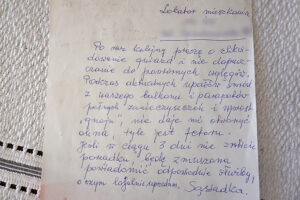 Lokator mieszkania
Po raz kolejny proszę o zlikwi-
dowanie gniazd i nie dopusz-
czanie do ponownych wylęgów.
Podczas aktualnych upałów smród
z waszego balkonu i parapetów
pełnych zanieczyszczeń i wprost
„gnoju” nie daje mi otworzyć
okna, tyle jest fetoru.
Jeśli w ciągu 3 dni nie znikną
, będę zmuszona
powiadomić odpowiednie służby,
o czym lojalnie uprzedzam. Sąsiadka.